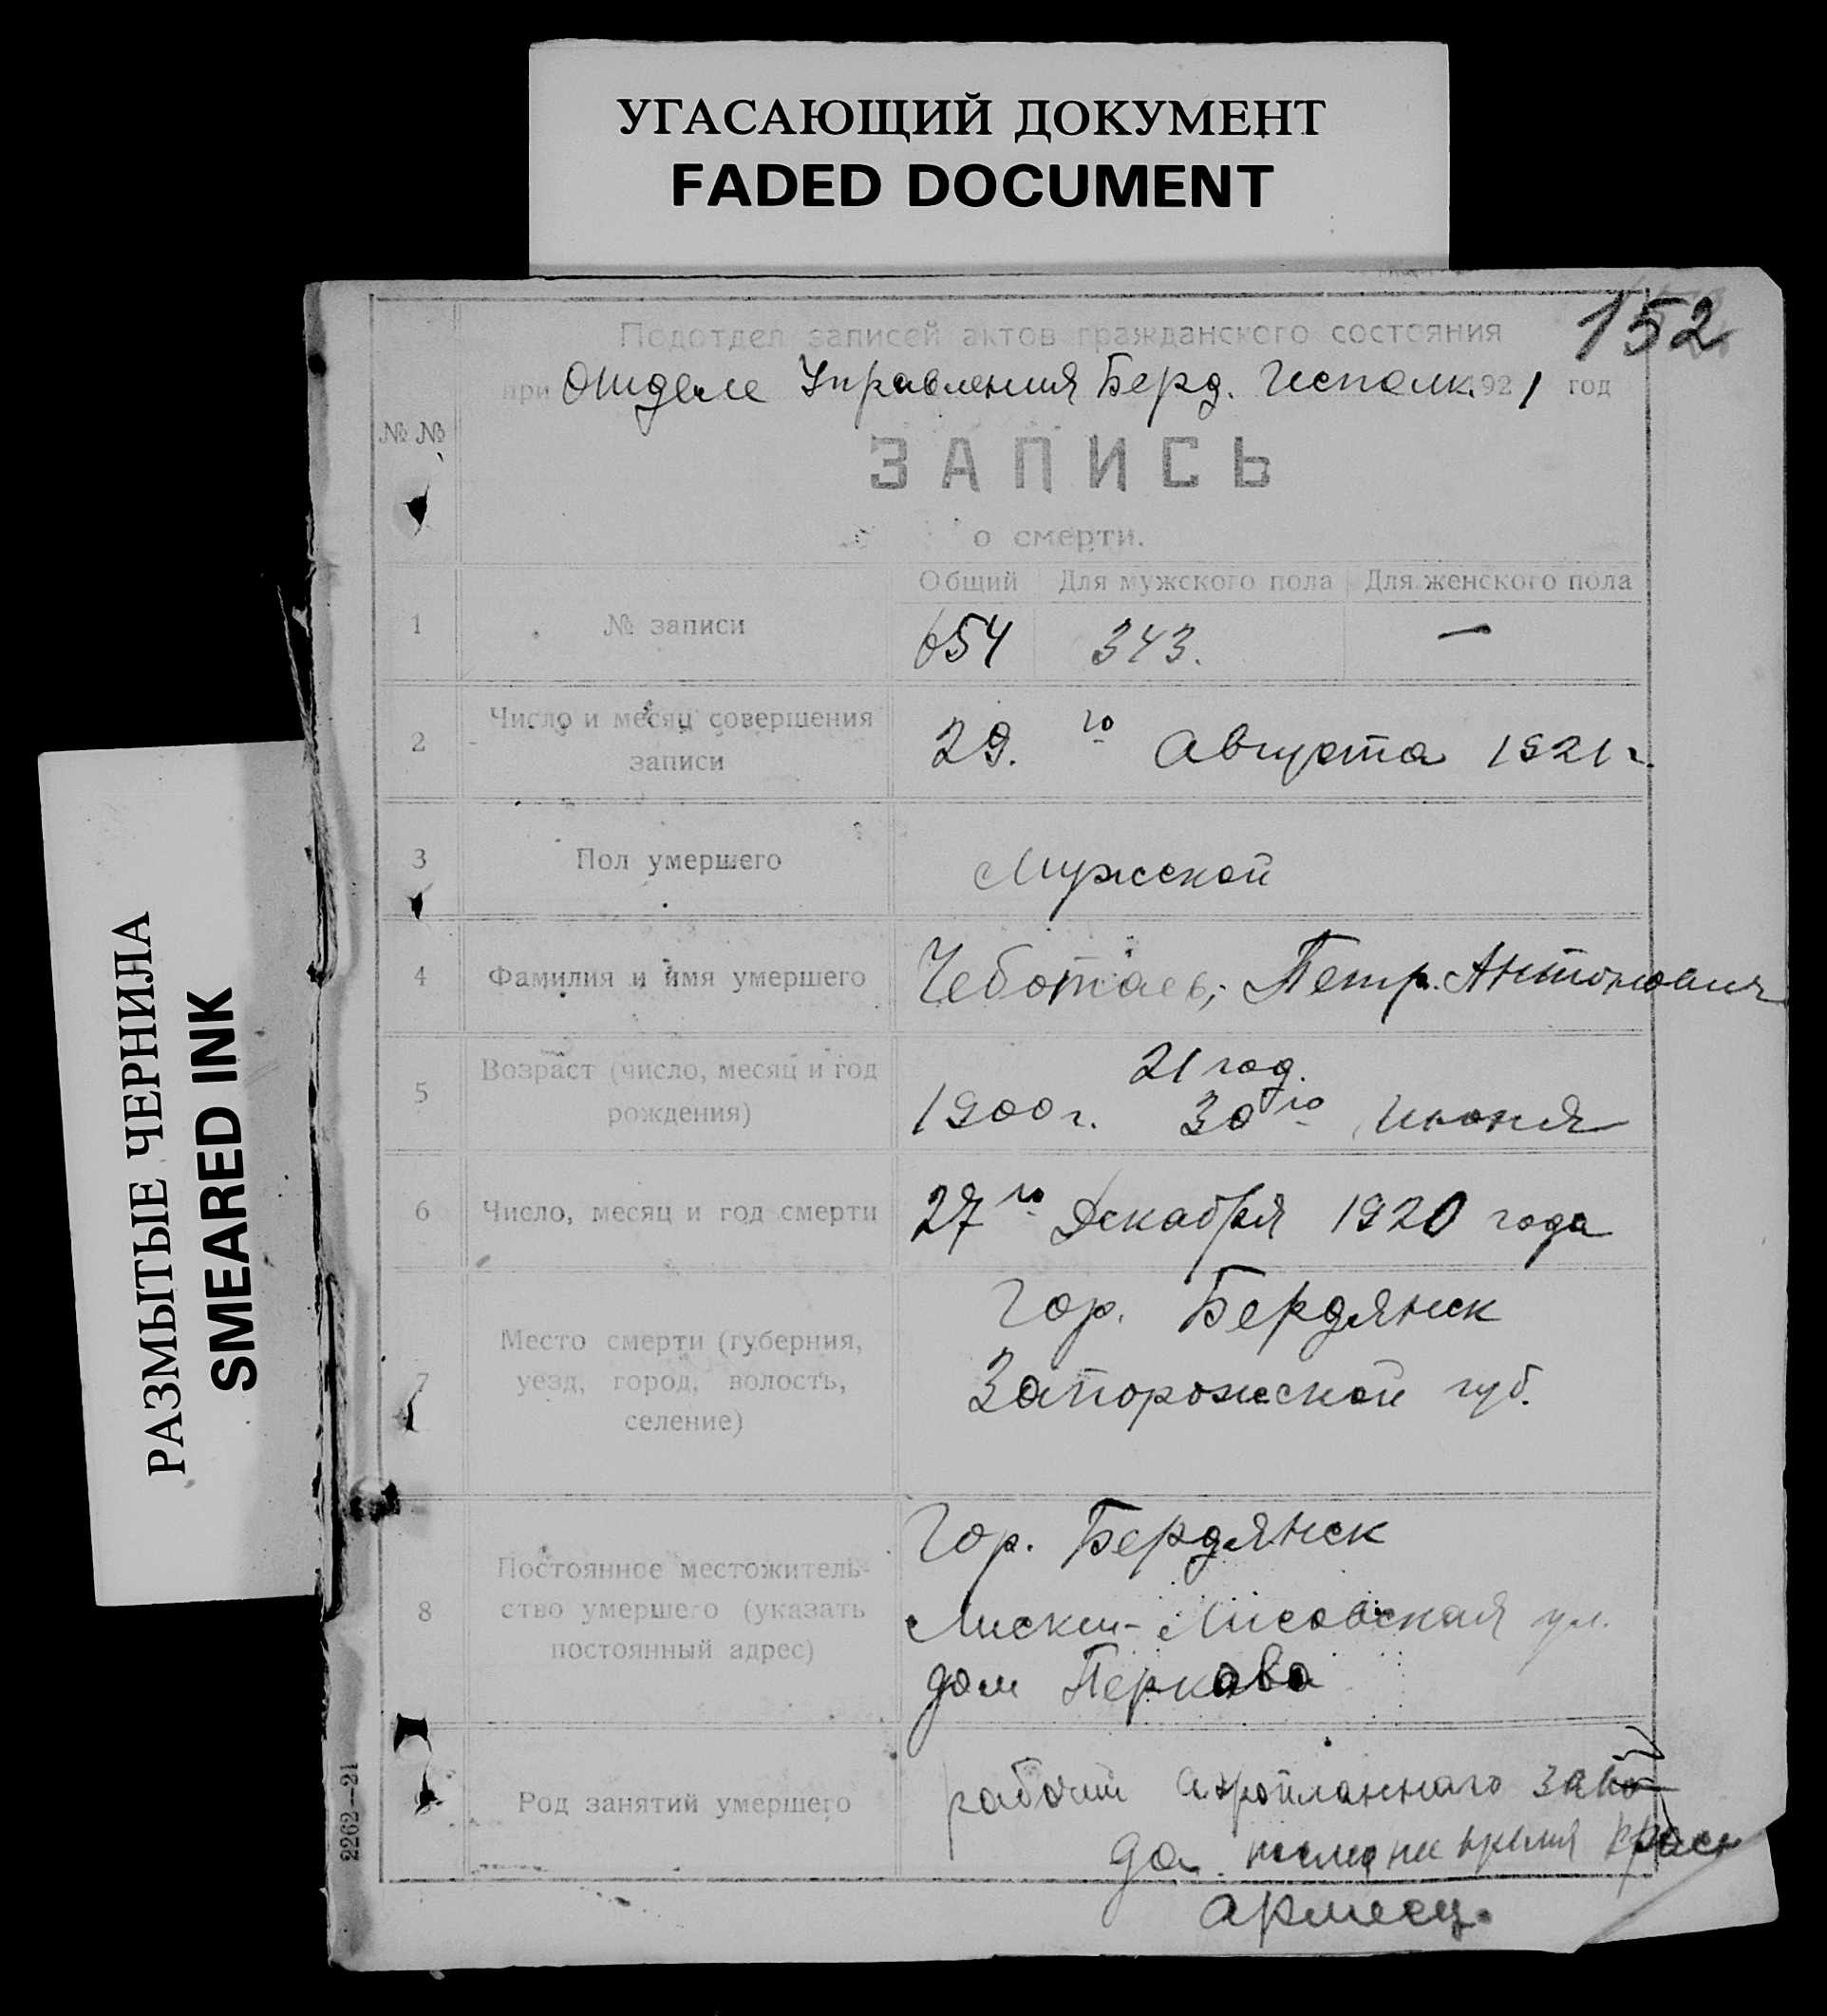 УГАСАЮЩИЙ ДОКУМЕНТ
FADED DOCUMENT
РАЗМЫТЫЕ ЧЕРНИЛА
SMEARED INK
152
Подотдел записей актов гражданского состояния
при Отделе Управления Берд. Исполк. 1921 год
№ №
ЗАПИСЬ
о смерти.
Общий Для мужского пола Для женского пола
1 № записи 654 343. —
2 Число и месяц совершения
записи 29. го Августа 1921 г.
3 Пол умершего Мужской
4 Фамилия и имя умершего Чеботаев, Петр. Антонович
5 Возраст (число, месяц и год
рождения) 21 год.
1900 г. 30го Июня
6 Число, месяц и год смерти 27го Декабря 1920 года
7 Место смерти (губерния,
уезд, город, волость,
селение) Гор. Бердянск
Запорожской губ.
8 Постоянное местожитель-
ство умершего (указать
постоянный адрес) Гор. Бердянск
Лисовская ул.
дом Перкова
Род занятий умершего рабочий аэропланнаго заво
да время красн
армеец.
2262—21